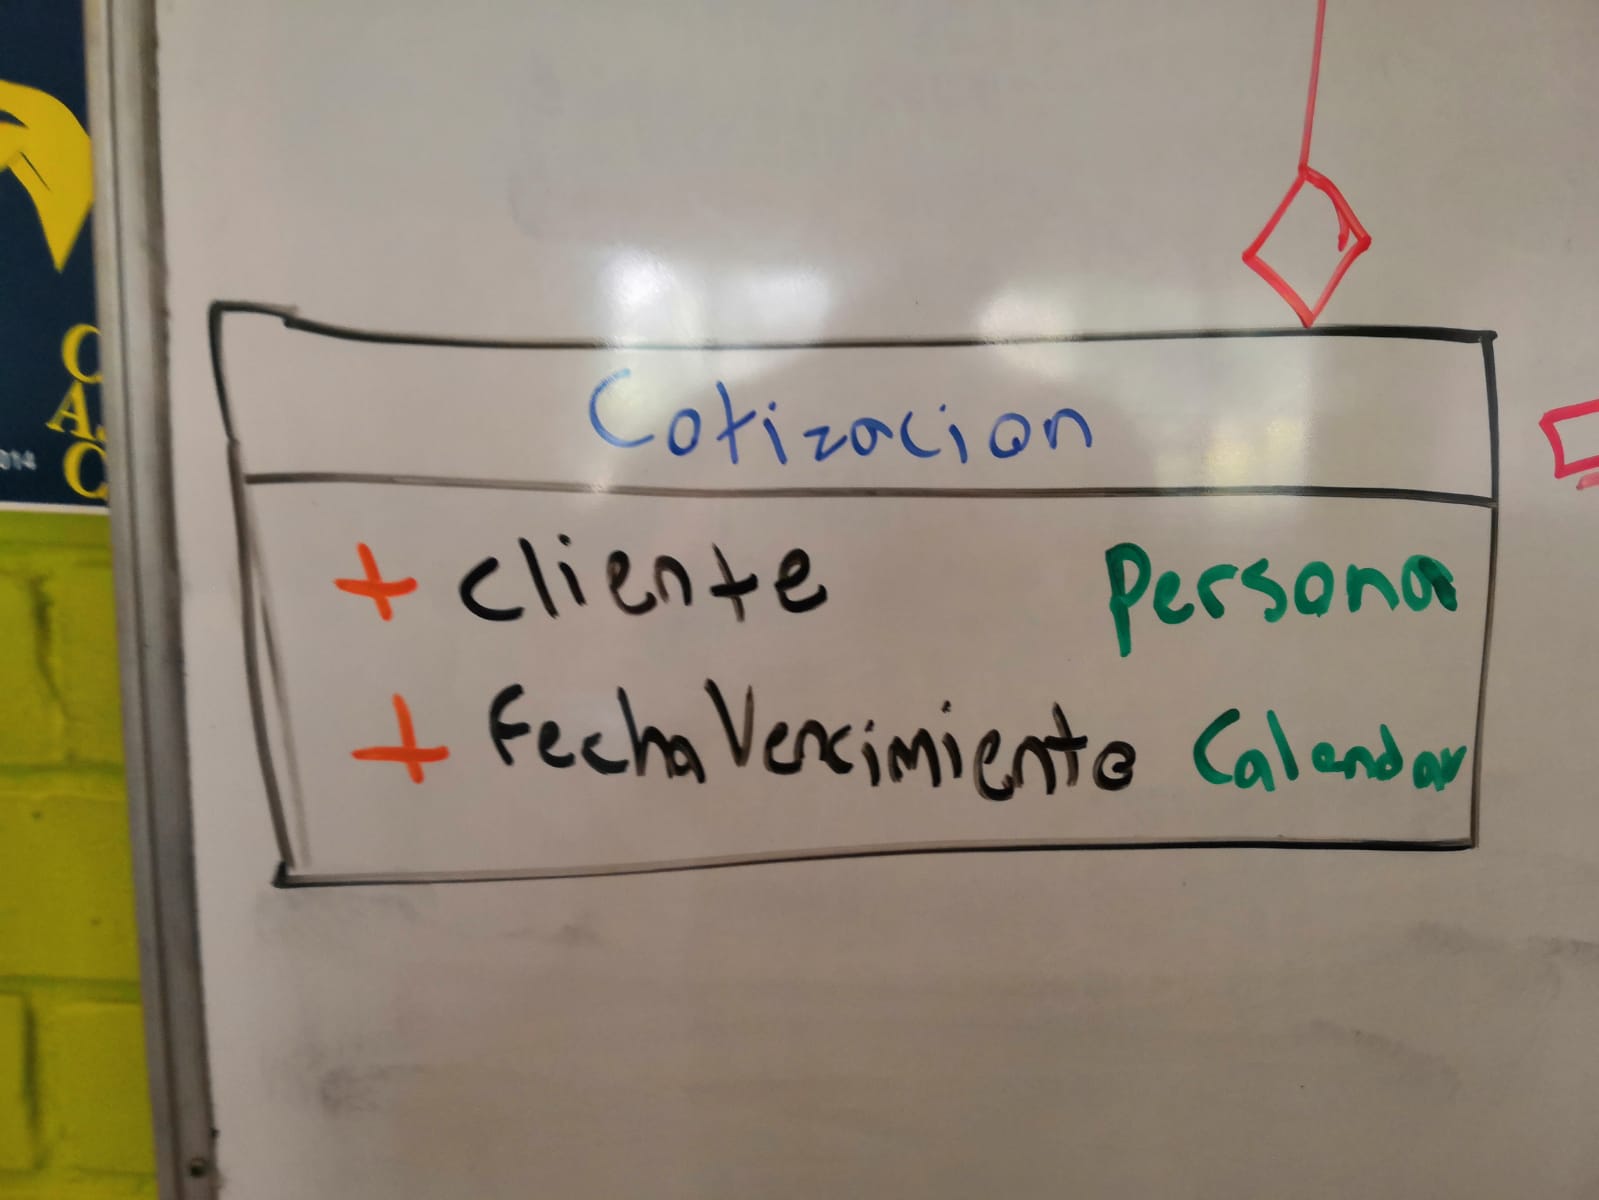 C
A.
C
014
Cotizacion
+ cliente Persona
+ FechaVencimiento Calendar